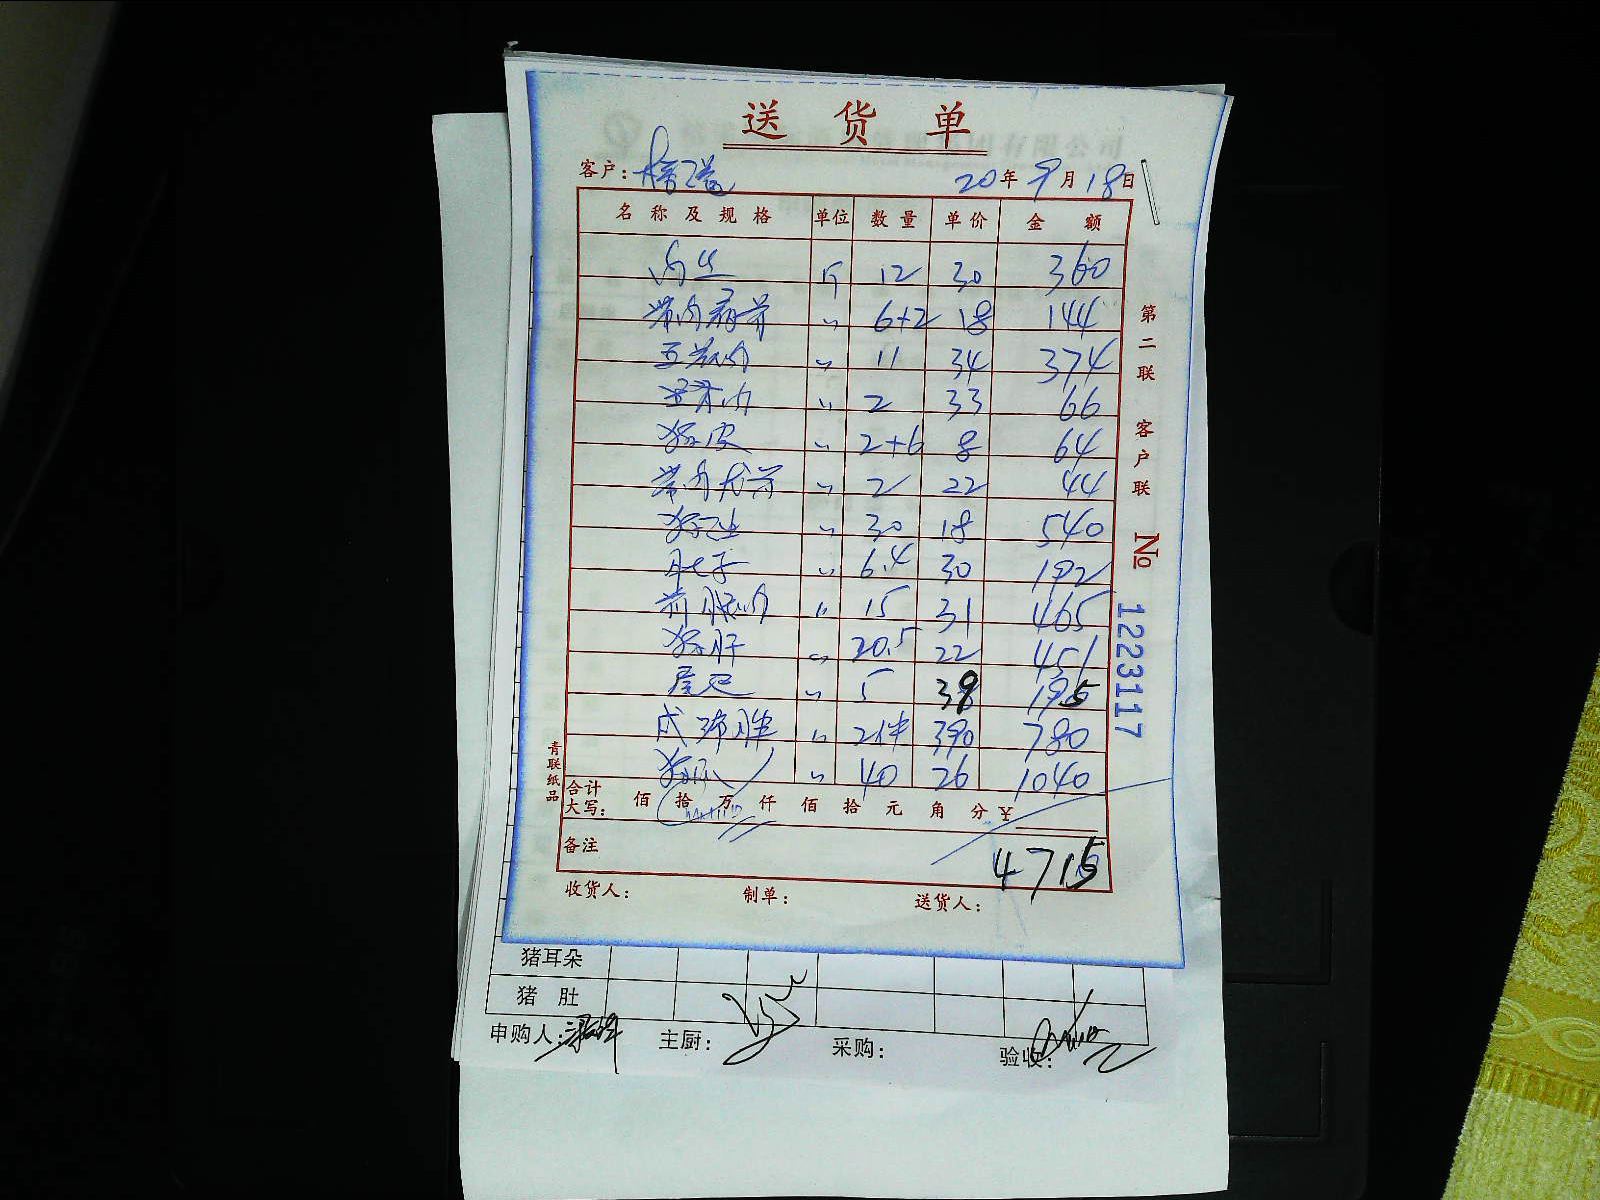 送货单
客户: 20年9月18日
名称及规格 单位 数量 单价 金额
肉丝 斤 12 30 360
带肉扇骨 〃 6+2 18 144
五花肉 〃 11 34 374
〃 2 33 66
猪皮 〃 2+6 8 64
带肉龙骨 〃 2 22 44
〃 30 18 540
肚子 〃 6.4 30 192
前腿肉 〃 15 31 465
猪肝 〃 20.5 22 451
〃 5 39 195
〃 2件 390 780
〃 40 26 1040
合计大写: 佰 拾 万 仟 佰 拾 元 角 分 ¥
备注 4715
收货人: 制单: 送货人:
第二联 客户联
No 1223117
青联纸品
猪耳朵
猪肚
申购人: 主厨: 采购: 验收: